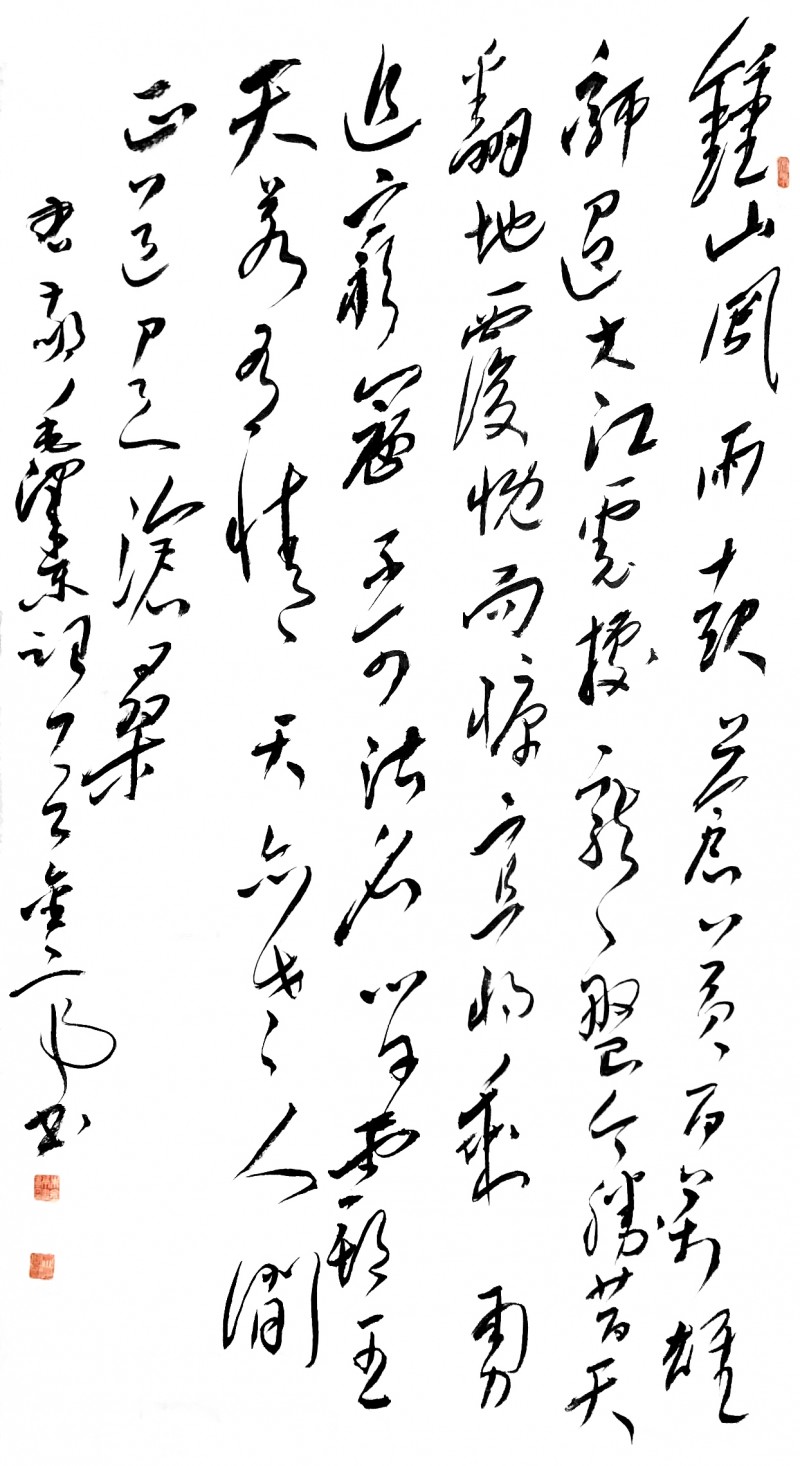 鍾山風雨起蒼黃百萬雄
師過大江虎據龍盤今勝昔天
翻地覆慨而慷宜將剩勇
追窮寇不可沽名學霸王
天若有情天亦老人間
正道是滄桑
毛澤東詞一首書